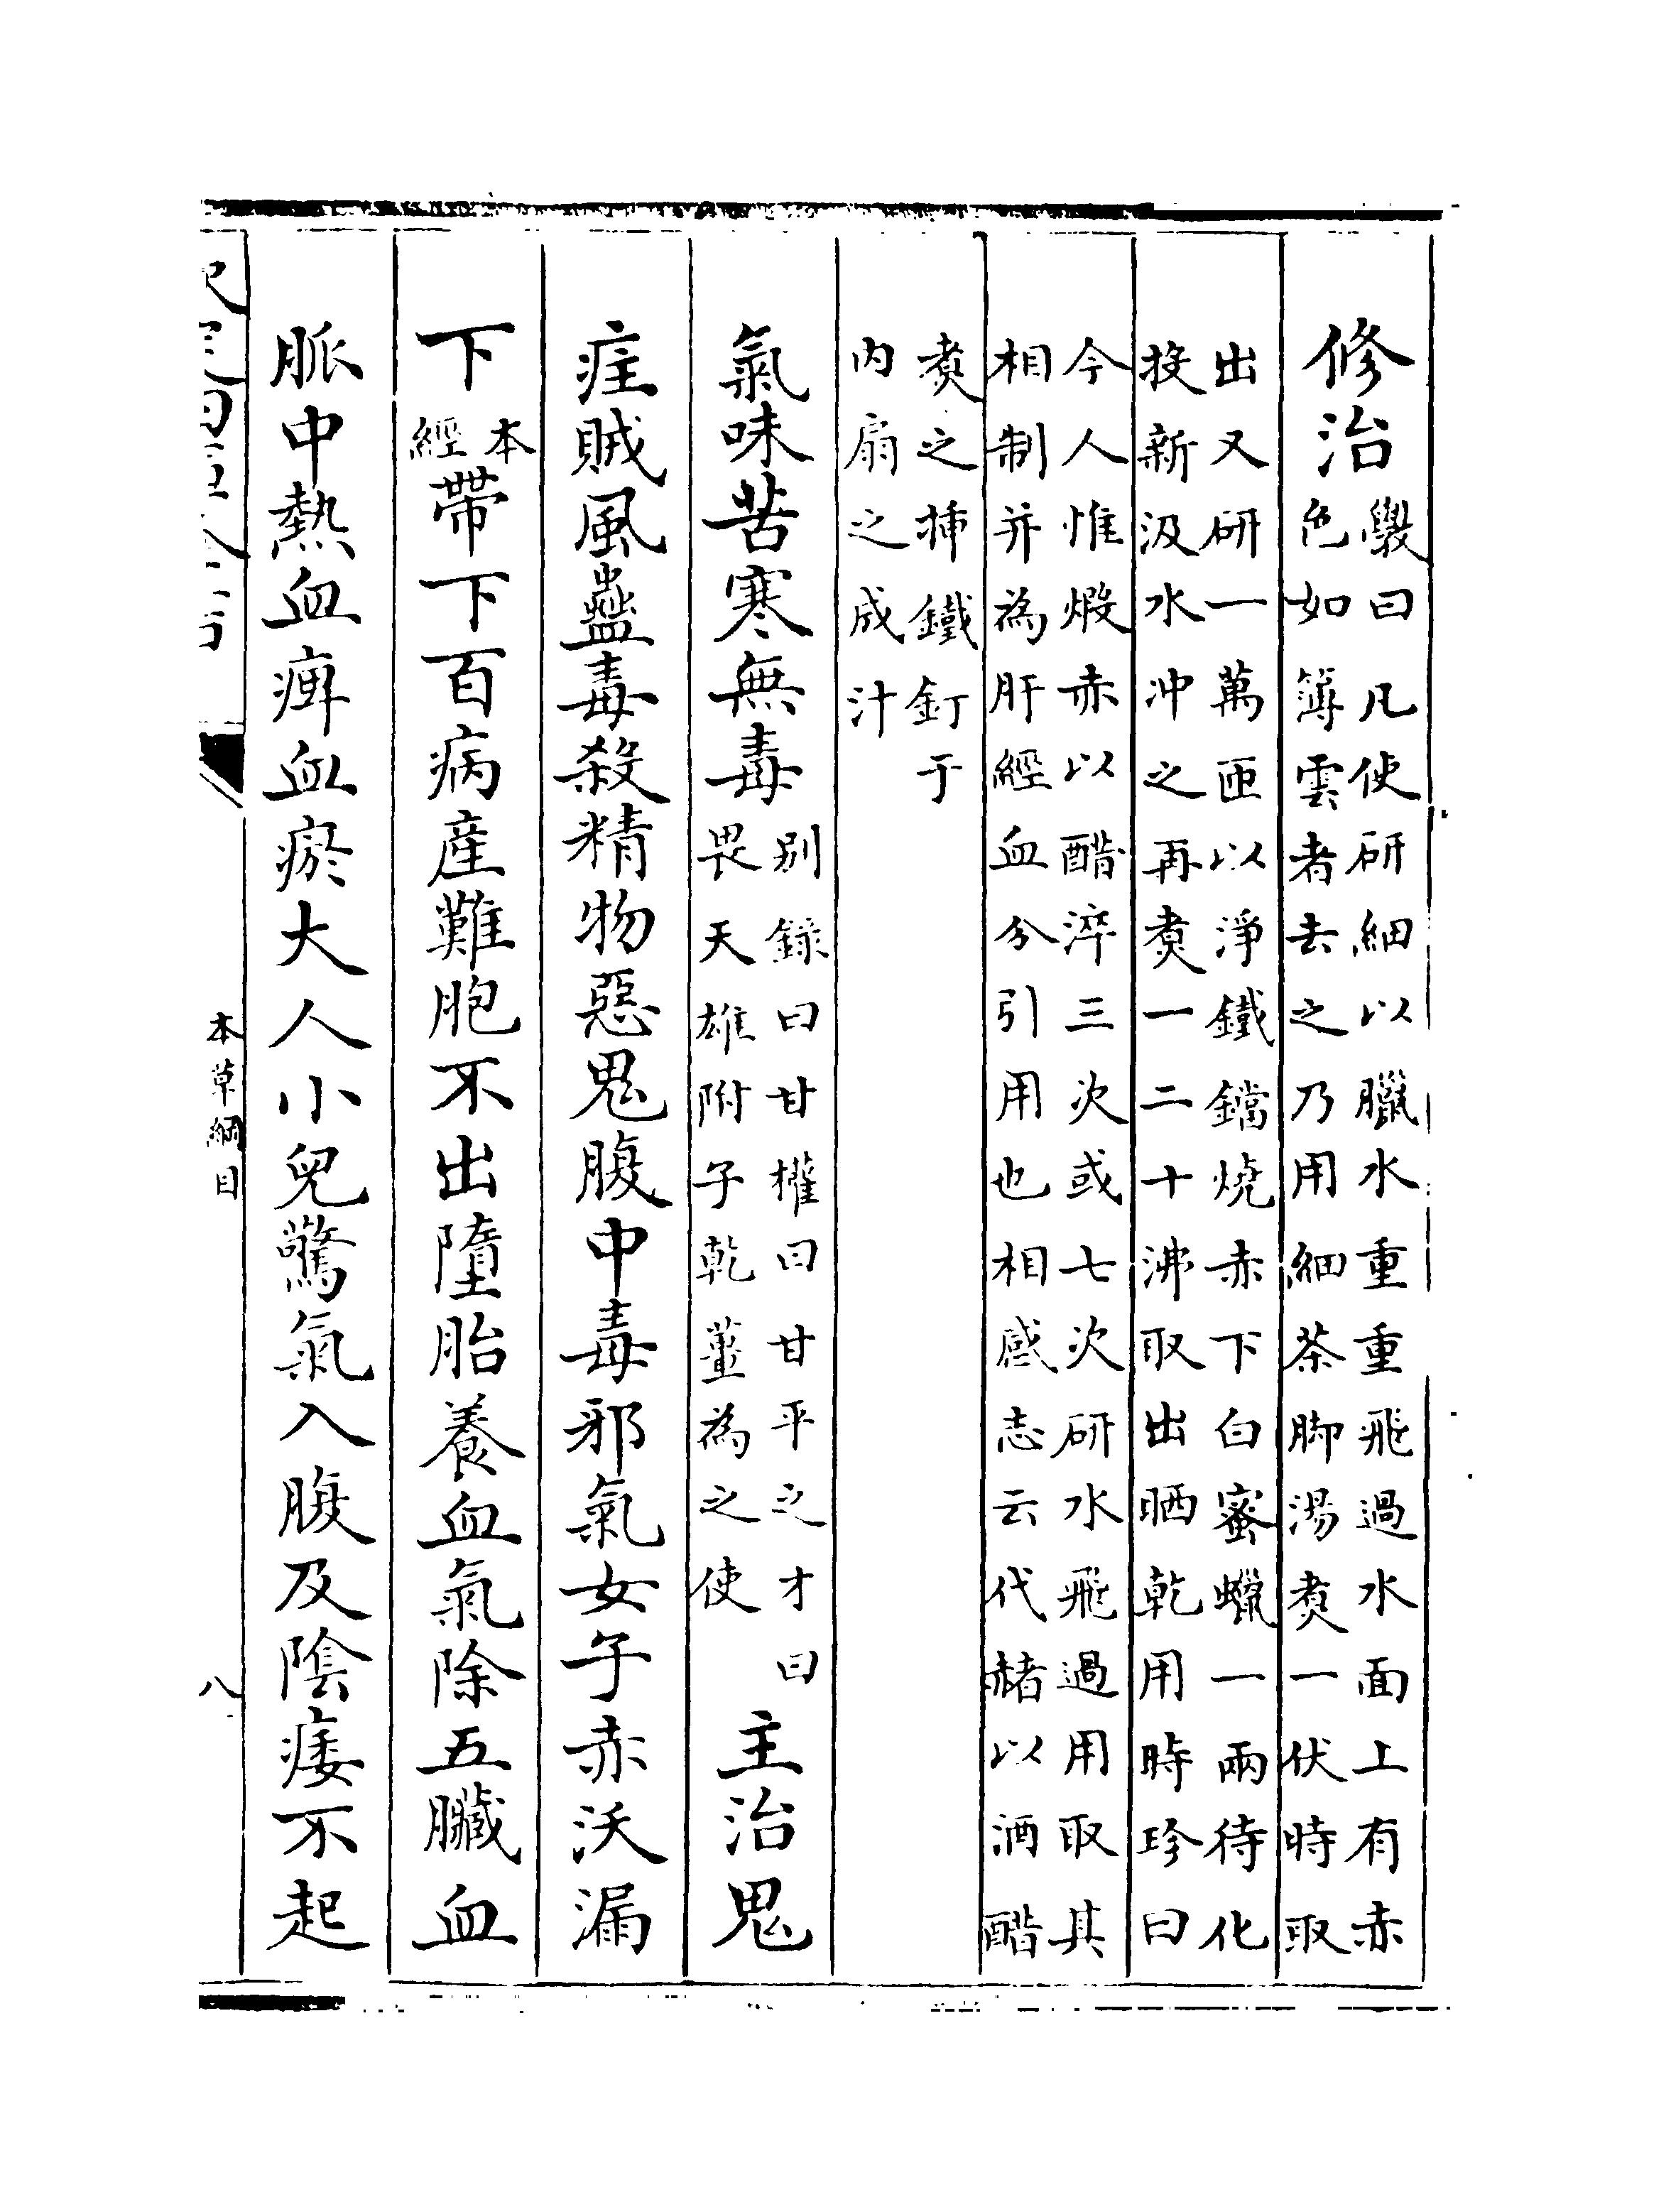 修治
斅曰凡使研細以臘水重重飛過水面上有赤
色如簿雲者去之乃用細茶脚湯煑一伏時取
出又研一萬匝以淨鐵鐺燒赤下白蜜蠟一兩待化
投新汲水冲之再煑一二十沸取出晒乾用時珍曰
今人惟煅赤以醋淬三次或七次研水飛過用取其
相制并為肝經血分引用也相感志云代赭以酒醋
煑之揷鐵釘于
内扇之成汁
氣味苦寒無毒
别錄曰甘權曰甘平之才曰
畏天雄附子乾薑為之使
主治鬼
疰賊風蠱毒殺精物惡鬼腹中毒邪氣女子赤沃漏
下
本
經
帶下百病產難胞不出墮胎養血氣除五臟血
脈中熱血痺血瘀大人小兒驚氣入腹及陰痿不起
本草綱目
八